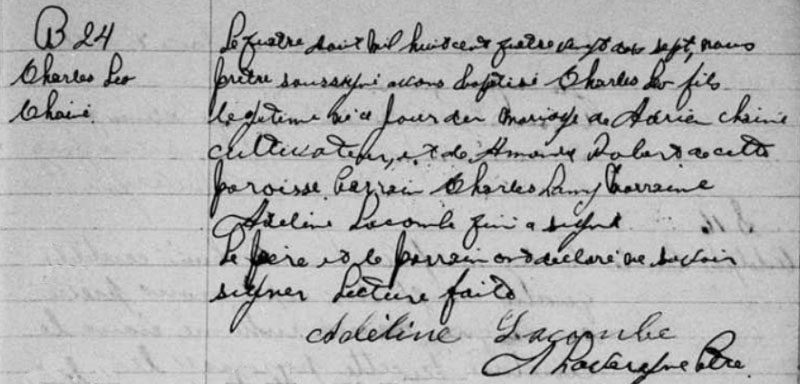 B 24
Charles Leo
Chainé
Le quatre aout mil huit cent quatre vingt dix sept, nous
prêtre soussigné avons baptisé Charles Leo fils
legitime né ce jour du mariage de Adrien Chainé
cultivateur, et de Amanda Robert de cette
paroisse. Parrain Charles Lamy Marraine
Adeline Lacombe qui a signé
Le père et le parrain ont declaré ne savoir
signer Lecture faite
Adéline Lacombe
Ptre.